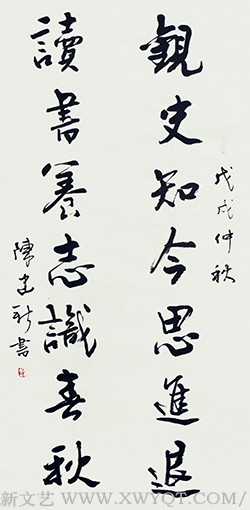 戊戌仲秋
觀史知今思進退
讀書養志識春秋
陳建新書
新文艺 WWW.XWYQT.COM/